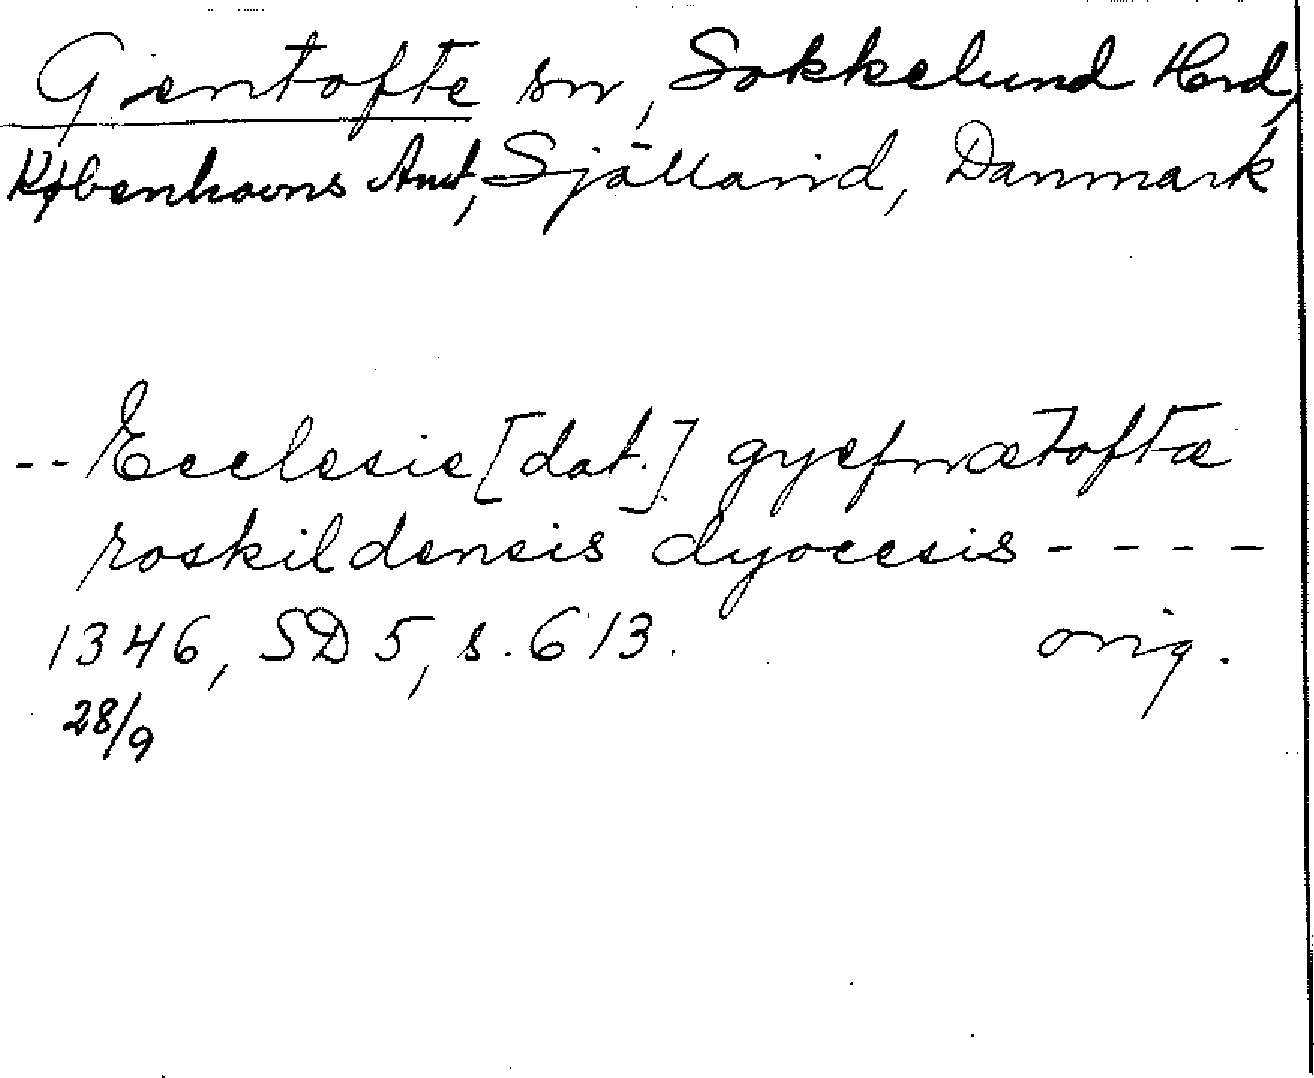 Gientofte sn, Sokkelund Hrd,
Københavns Amt, Själland, Danmark
-- Ecclesie [dat.] gyefnætoftæ
roskildensis dyocesis ----
1346, SD 5, s. 613. orig.
28/9